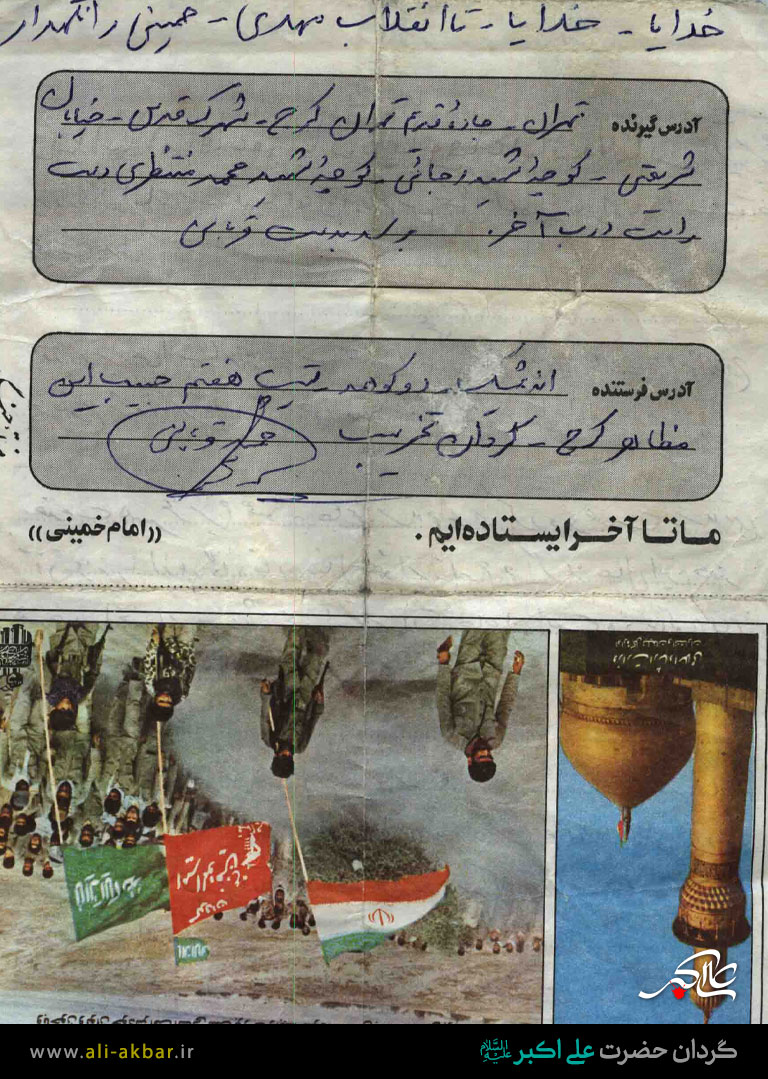 خدایا - خدایا - تا انقلاب مهدی - خمینی را نگهدار
آدرس گیرنده تهران - جاده قدیم تهران کرج - شهرک قدس - خیابان
شریعتی - کوچه شهید رجائی - کوچه شهید محمد منتظری دست
راست درب آخر. برسد بدست قربانی
آدرس فرستنده اندیمشک - دوکوهه - تیپ هفتم حبیب ابن
مظاهر کرج - گردان تخریب
ما تا آخر ایستاده‌ایم . ((امام خمینی))
علی اکبر
www.ali-akbar.ir
گردان حضرت علی اکبر علیه السلام